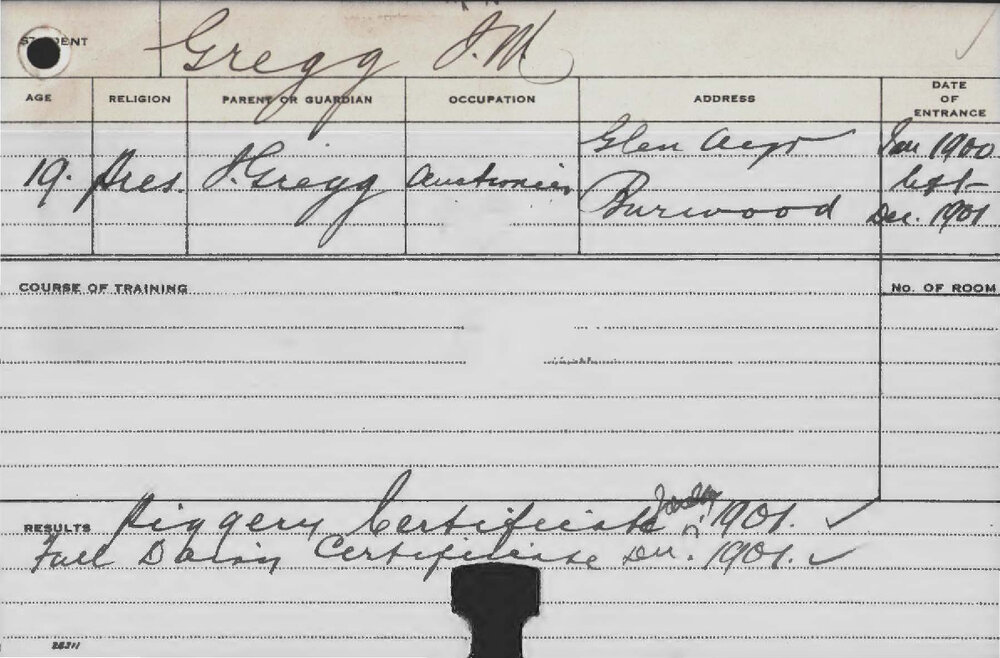 STUDENT Gregg J.M
AGE RELIGION PARENT OR GUARDIAN OCCUPATION ADDRESS DATE OF ENTRANCE
19. Pres. J. Gregg Auctioneer Glen Ayr Jan 1900
Burwood left
Dec. 1901
COURSE OF TRAINING No. OF ROOM
RESULTS Piggery Certificate 1901. ✓
Full Dairy Certificate Dec. 1901. ✓